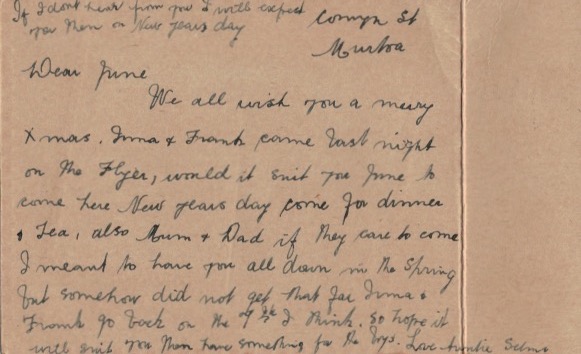 If I dont hear from you I will expect
you then on New years day
Comyn St
Murtoa
Dear June
We all wish you a merry
Xmas. Irma & Frank came last night
on the Flyer, would it suit you June to
come here New years day come for dinner
& Tea, also Mum & Dad if they care to come
I meant to have you all down in the Spring
but somehow did not get that far Irma &
Frank go back on the I think. so hope it
will suit you then have something for the boys. Love Auntie Selma